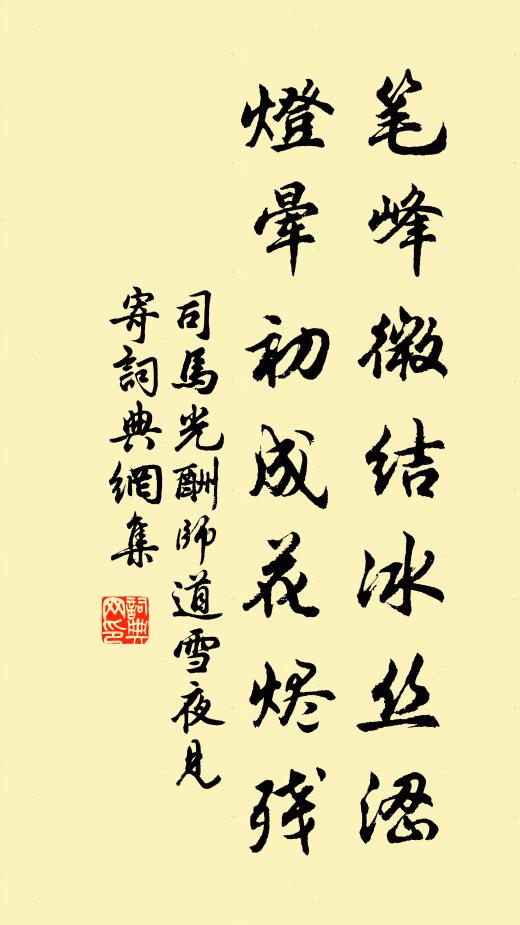 笔峰微结冰丝涩
燈晕初成花烬残
司馬光酬師道雪夜見
寄詞典網集
詞典
网印